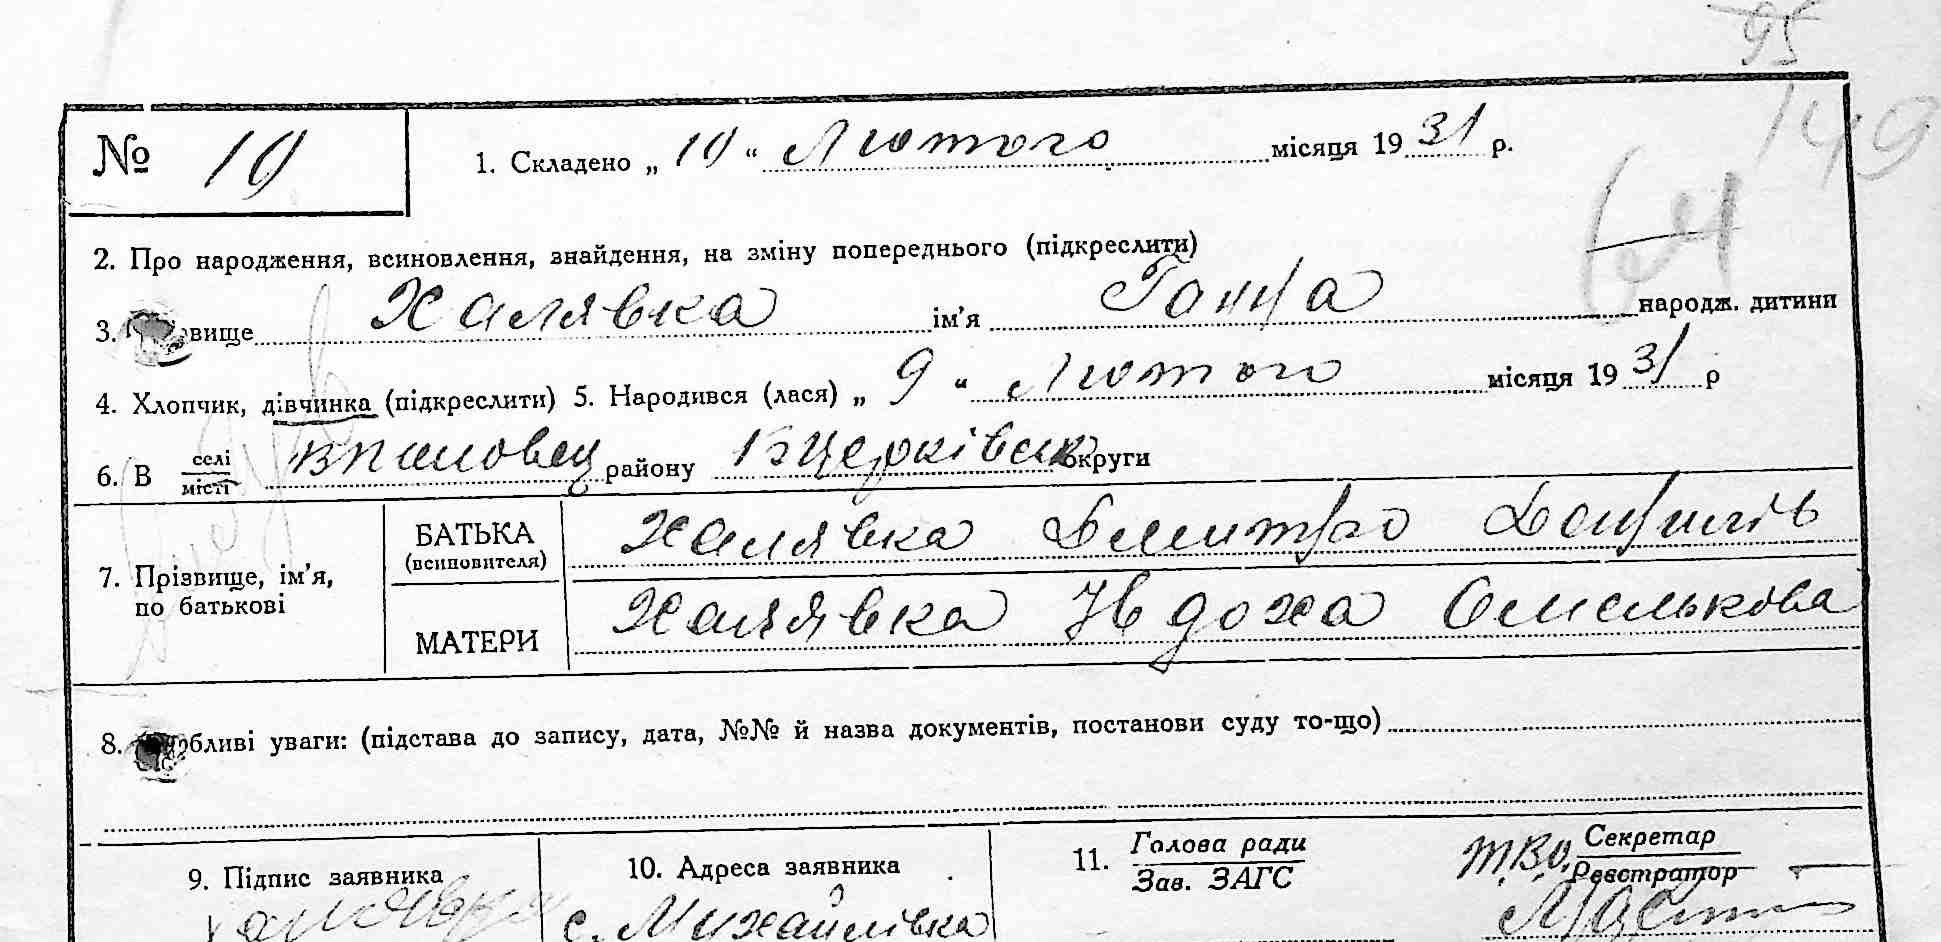 95
149
№ 10
1. Складено „ 10 “ Лютого місяця 1931 р.
64
2. Про народження, всиновлення, знайдення, на зміну попереднього (підкреслити)
3. вище Халявка ім’я Ганна народж. дитини
4. Хлопчик, дівчинка (підкреслити) 5. Народився (лася) „ 9 “ Лютого місяця 1931 р
6. В селі місті району БЦерківськ округи
7. Прізвище, ім’я, по батькові
БАТЬКА (всиновителя) Халявка Дмитро Данилів
МАТЕРИ Халявка Явдоха Омелькова
8. бливі уваги: (підстава до запису, дата, №№ й назва документів, постанови суду то-що)
9. Підпис заявника
10. Адреса заявника
с. Михайлівка
11. Голова ради
Зав. ЗАГС
Т.В.О. Секретар
Реєстратор